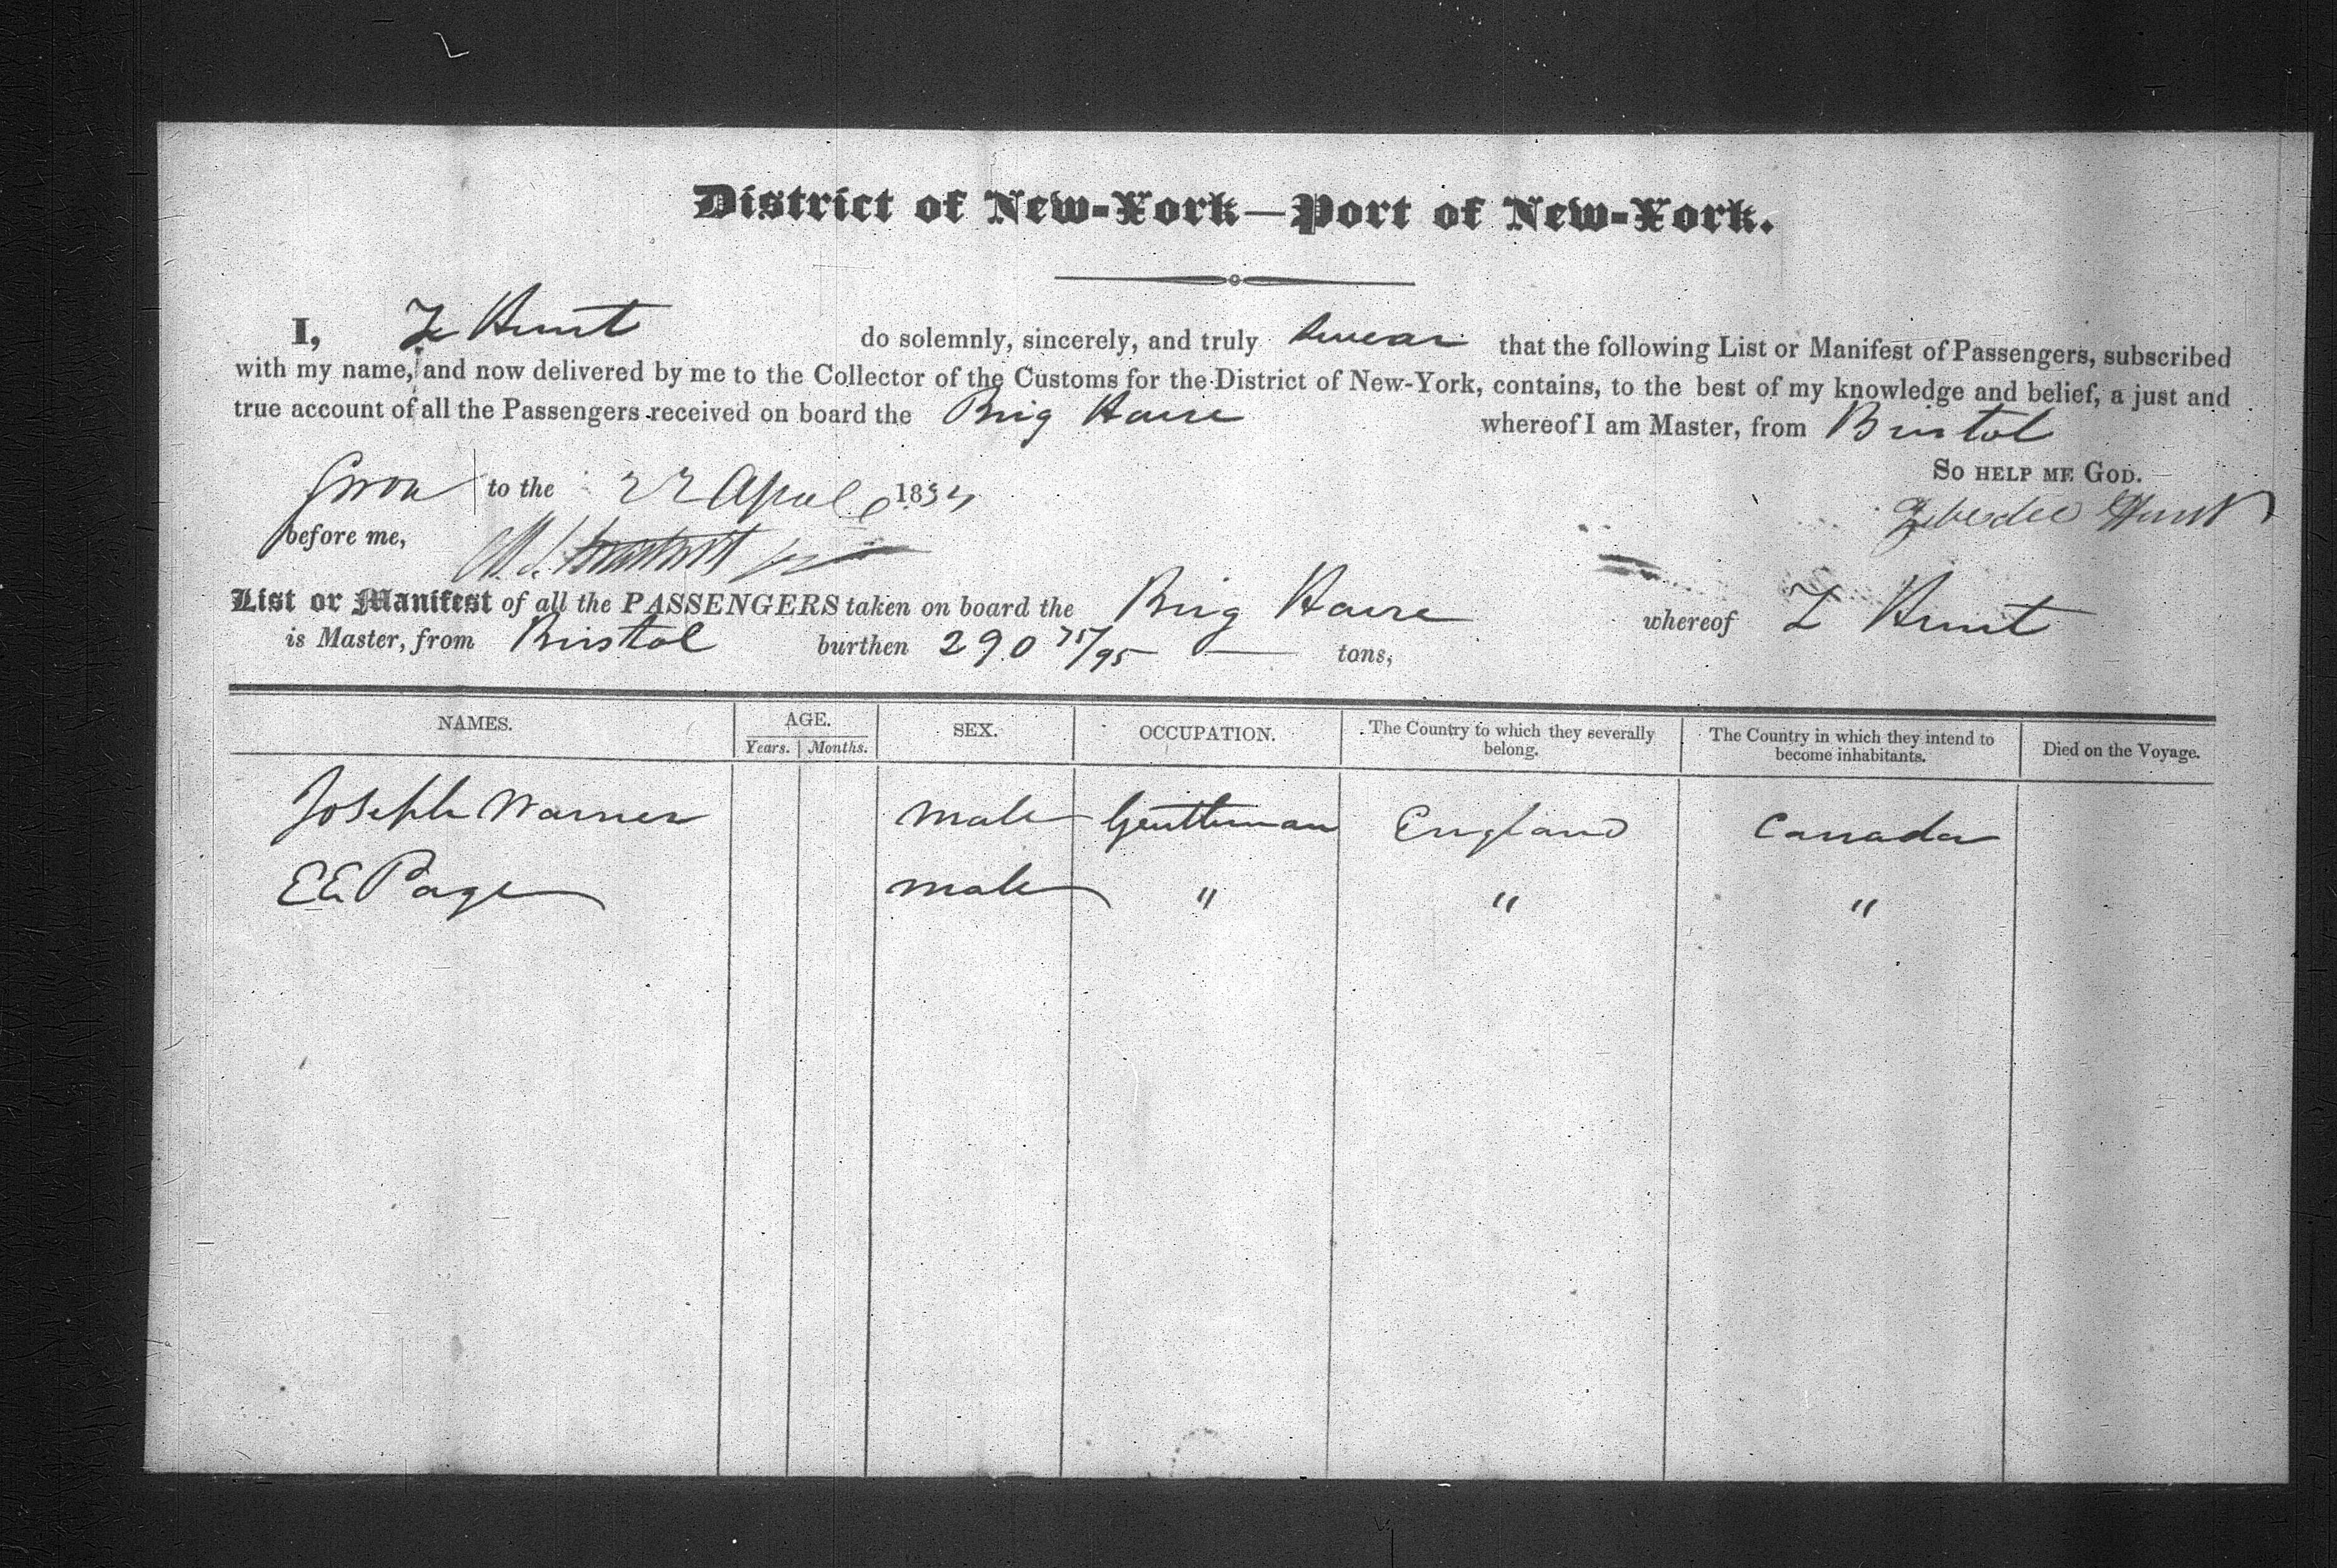 District of New-York—Port of New-York.
I, Z Hunt do solemnly, sincerely, and truly swear that the following List or Manifest of Passengers, subscribed
with my name, and now delivered by me to the Collector of the Customs for the District of New-York, contains, to the best of my knowledge and belief, a just and
true account of all the Passengers received on board the Brig Havre whereof I am Master, from Bristol
So help me God.
Sworn to the 22 April 1834
Zebedee Hunt
before me,
List or Manifest of all the PASSENGERS taken on board the Brig Havre whereof Z Hunt
is Master, from Bristol burthen 290 75/95 — tons,
NAMES. AGE. SEX. OCCUPATION. The Country to which they severally belong. The Country in which they intend to become inhabitants. Died on the Voyage.
Years. Months.
Joseph Warner male Gentleman England Canada
EE Page male " " "